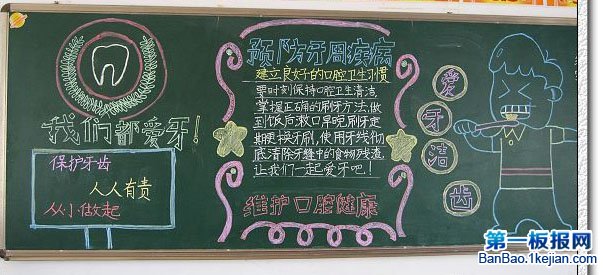 我们都爱牙！
保护牙齿
人人有责
从小做起
预防牙周疾病
建立良好的口腔卫生习惯
要时刻保持口腔卫生清洁，
掌握正确的刷牙方法，做
到饭后漱口早晚刷牙定
期更换牙刷，使用牙线彻
底清除牙缝中的食物残渣，
让我们一起爱牙吧！
维护口腔健康
爱
牙
洁
齿
第一板报网
BanBao.1kejian.com